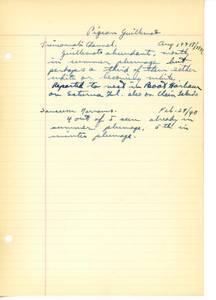 Pigeon Guillemot
Aug 1947
Guillemots abundant, most
in summer plumage but
perhaps a third of them either
white or becoming white.
Reported to nest in Boat Harbour
on Saturna Isl. also on
Sansum Narrows. Feb. 29/48
4 out of 5 seen already in
summer plumage, 5th in
winter plumage.